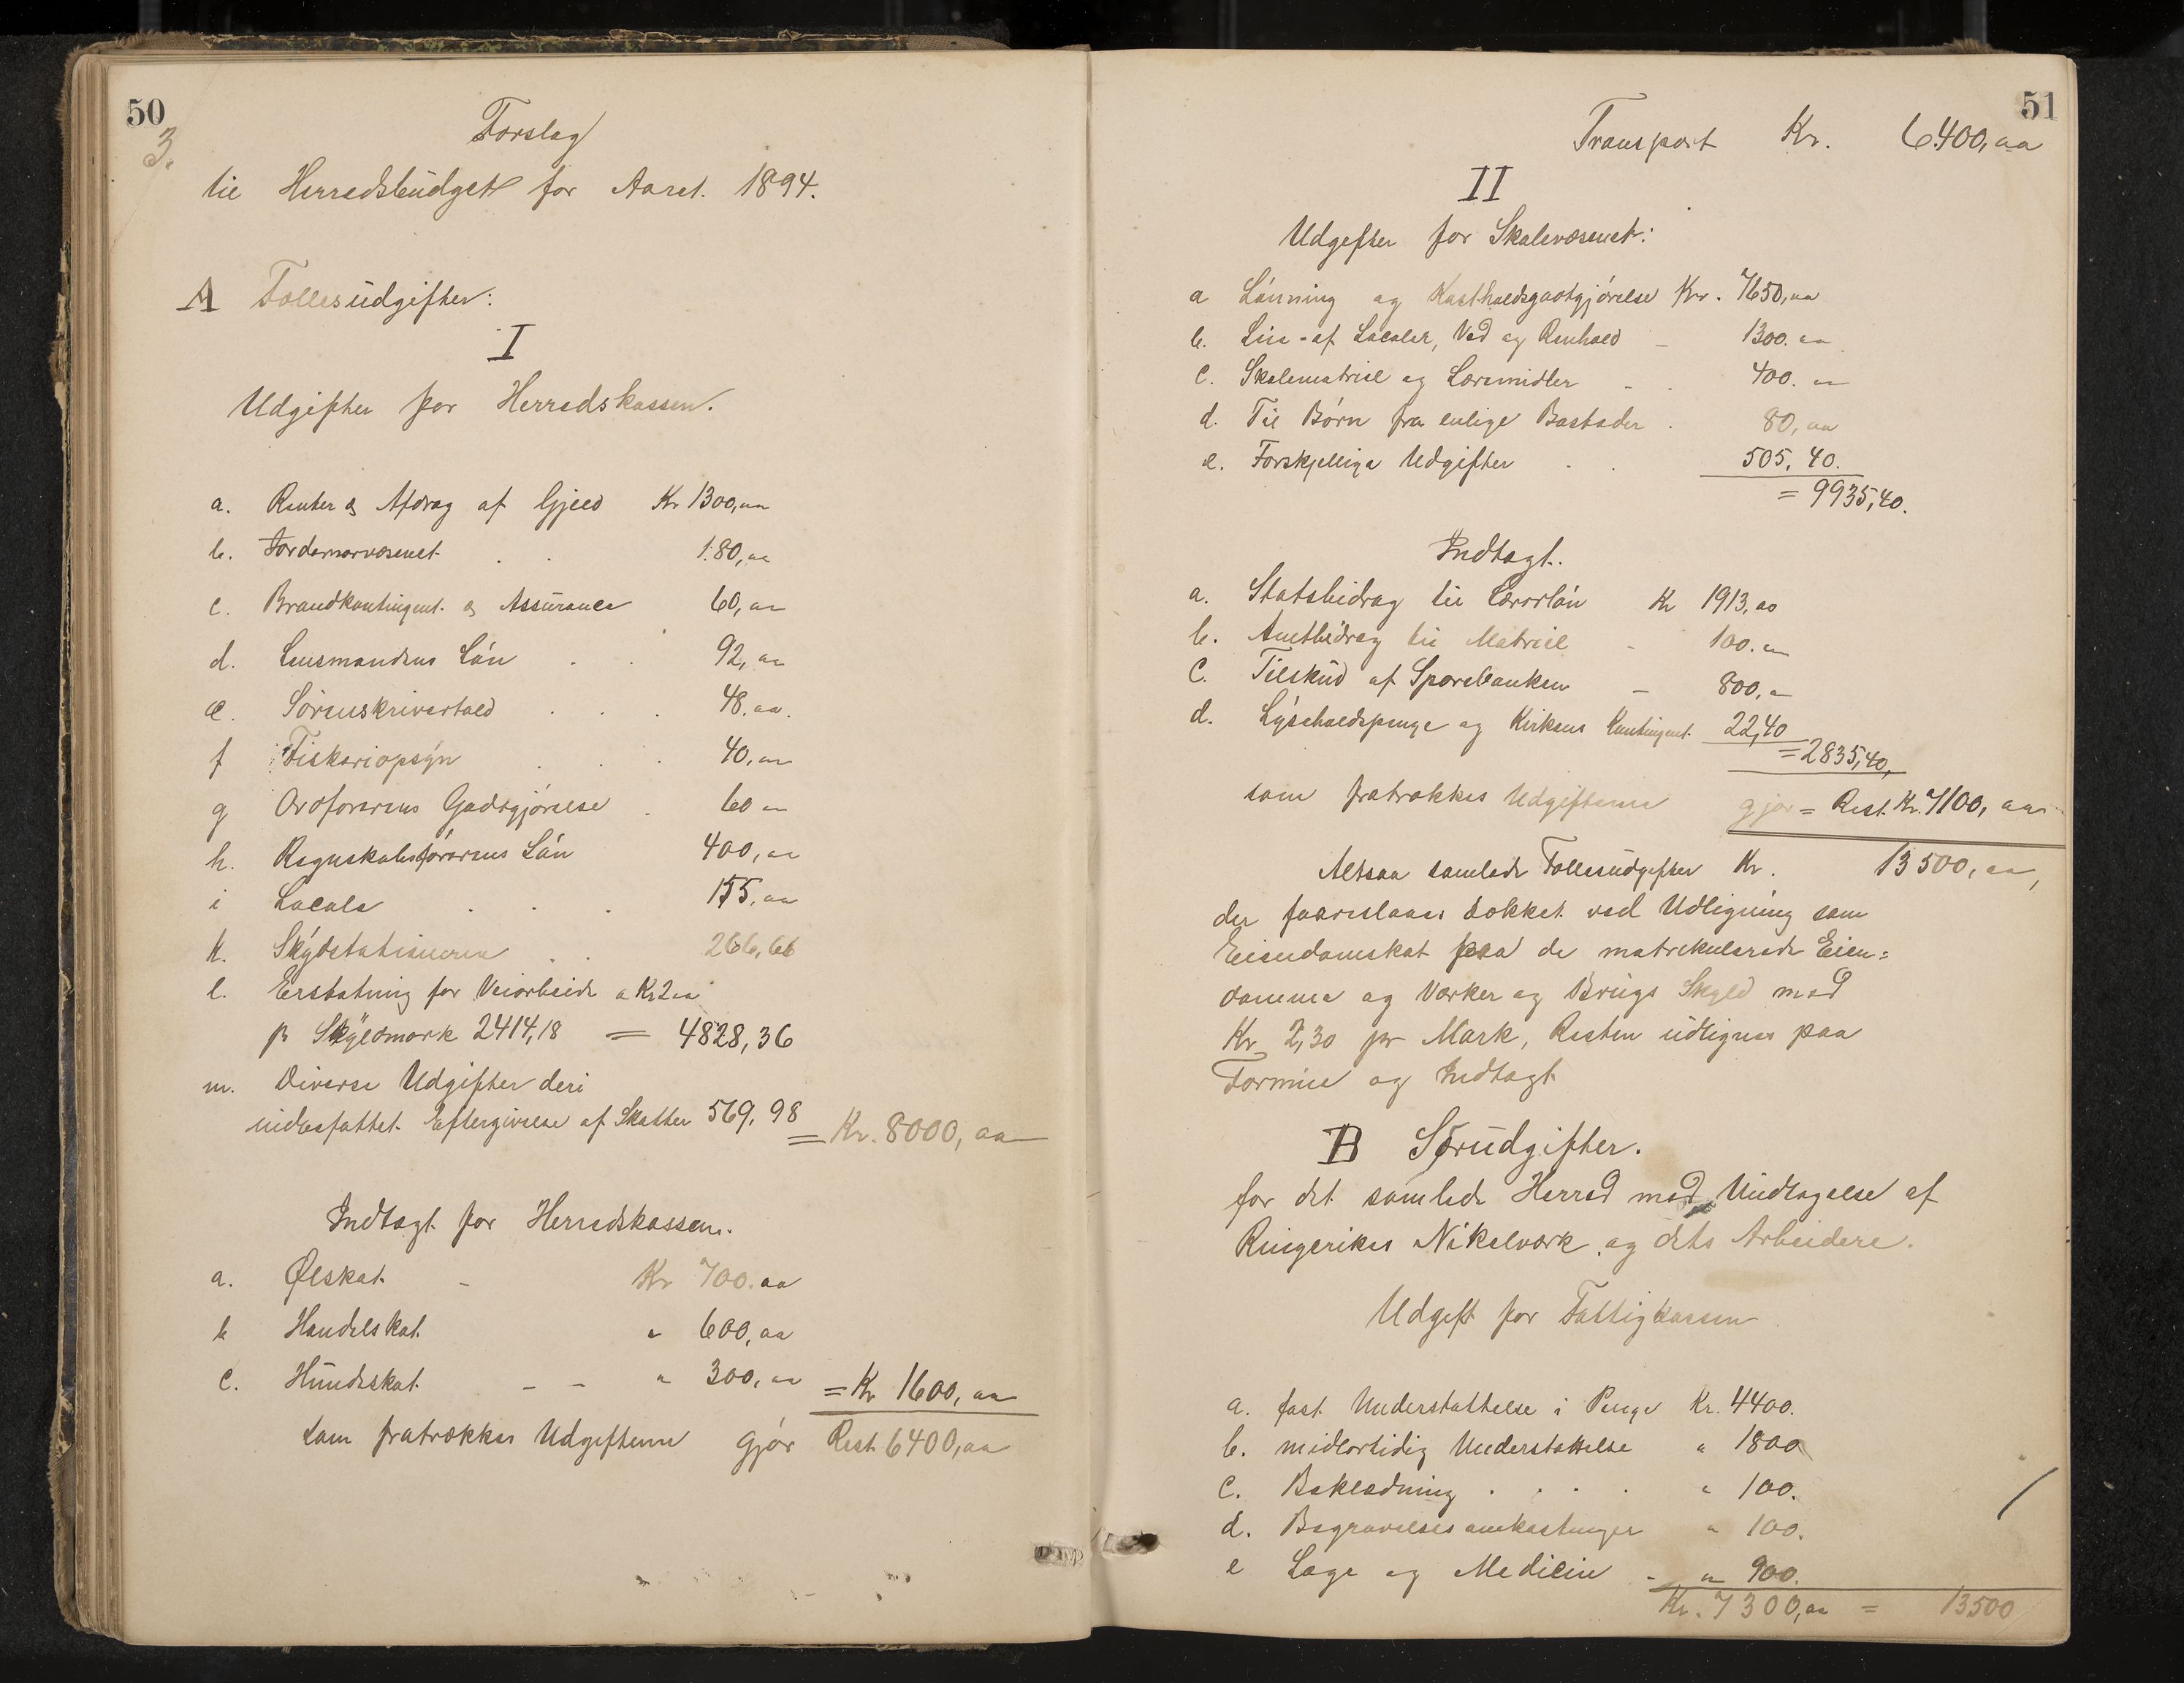 50
3.
Forslag
til Herredsbudget for Aaret 1894.
A Fællesudgifter:
I
Udgifter for Herredskassen.
a. Renter & Afdrag af Gjeld Kr 1300,00
b. Jordemorvæsenet . . 180,00
c. Brandkontingent & Assurance 60,00
d. Lensmandens Løn . . 92,00
e. Sørenskrivertold . . . 48.00.
f Fiskeriopsyn . . . 40,00
g Ordførerens Godtgjørelse . 60 00
h. Regnskabsførerens Løn 400,00
i Locale . . . 155,00
k. Skydsstationerne . . 266,66
l. Erstatning for Veiarbeide a Kr 2 00
pr Skyldmark 2414,18 = 4828,36
m. Diverse Udgifter deri
indbefattet Eftergivelse af Skatter 569,98
= Kr. 8000,00
Indtægt for Herredskassen.
a. Ølskat - Kr 700.00
b Handelskat " 600,00
c. Hundeskat - - " 300,00 = Kr 1600,00
som fratrækkes Udgifterne gjør Rest 6400,00
51
Transport Kr. 6400,00
II
Udgifter for Skolevæsenet:
a Lønning og Kostholdsgodtgjørelse Kr. 7650,00
b. Leie af Localer, Ved og Renhold - 1300.00
c. Skolematriel og Læremidler - . 400.00
d. Til Børn fra enlige Bosteder . 80,00
e. Forskjellige Udgifter . . 505,40.
= 9935,40.
Indtægt.
a. Statsbidrag til Lærerløn Kr 1913,00
b. Amtbidrag til Matriel - 100.00
c. Tilskud af Sparebanken - 800,00
d. Lyseholdspenge og Kirkens Kontingent 22,40
= 2835,40,
som fratrækkes Udgifterne gjør = Rest. Kr. 7100,00
Altsaa samlede Fællesudgifter Kr. 13500,00,
der foareslaaes dækket ved Udligning som
Eiendomskat paa de matrekulerede Eien=
domme og Værker og Brugs Skyld med
Kr 2,30 pr Mark, Resten udlignes paa
Formue og Indtægt
B Særudgifter.
for det samlede Herred med Undtagelse af
Ringerikes Nikelværk og dets Arbeidere.
Udgift for Fattigkassen
a. fast Understøttelse i Penge Kr. 4400.
b. midlertidig Understøttelse " 1800
c. Beklædning . . . . " 100.
d. Begravelsesomkostninger " 100.
e Læge og Medicin - " 900.
Kr. 7300,00 = 13500